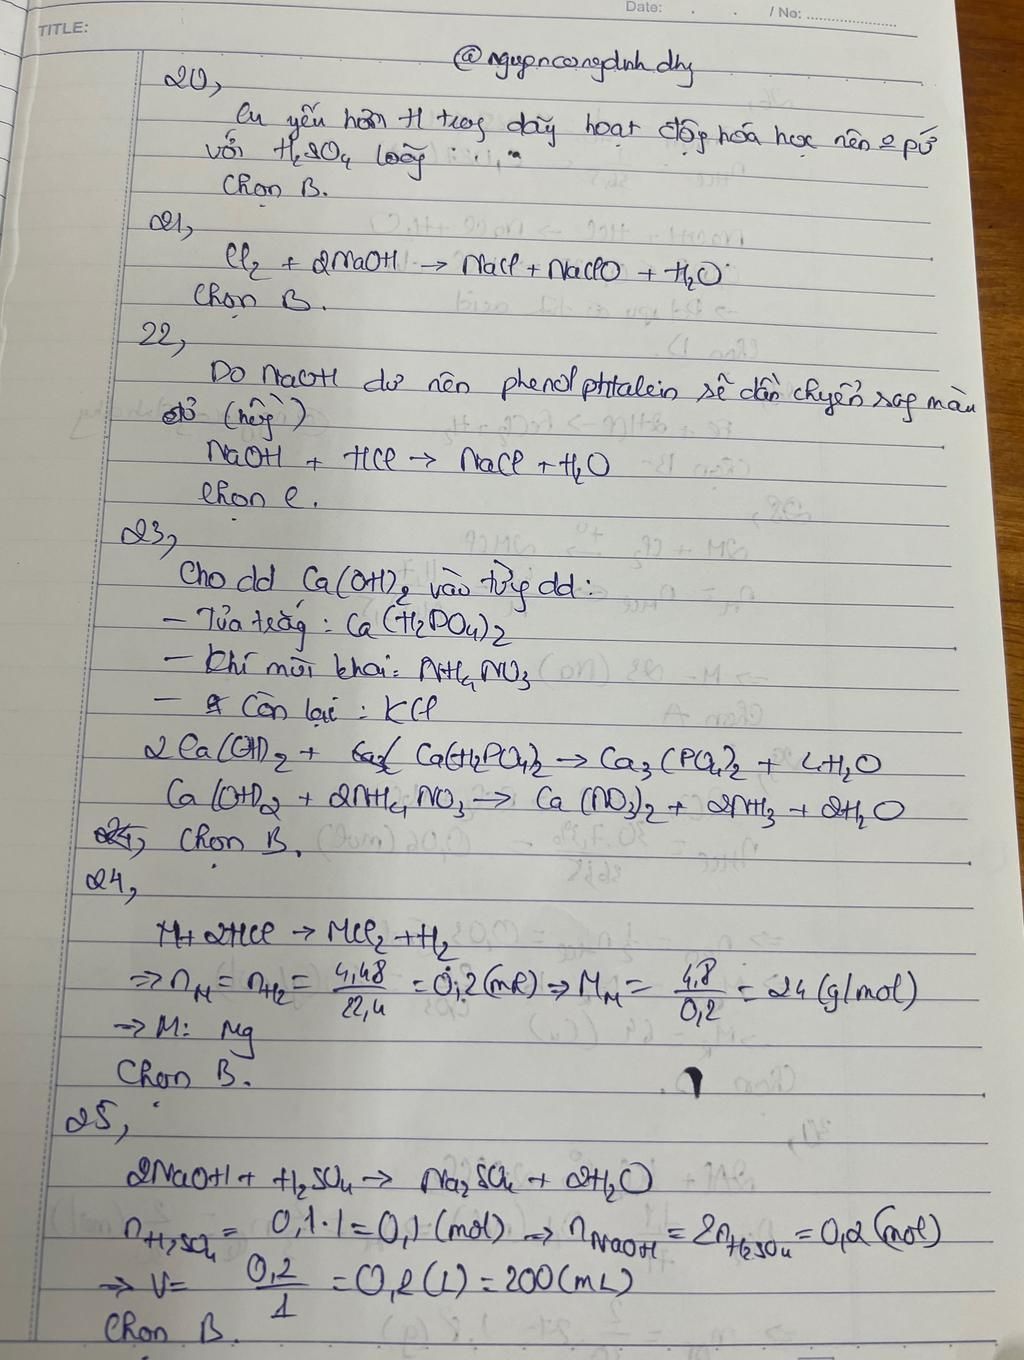 Date: . . / No: ....................
TITLE:
@nguyncongdinh.dhy
20,
Cu yếu hơn H trog dãy hoạt độg hóa học nên 0 pứ
với H₂SO₄ loãg
Chọn B.
21,
Cl₂ + 2NaOH → NaCl + NaClO + H₂O
Chọn B.
22,
Do NaOH dư nên phenolphtalein sẽ dần chuyển sag màu
đỏ (hồg)
NaOH + HCl → NaCl + H₂O
Chọn C.
23,
Cho dd Ca(OH)₂ vào từg dd:
- Tủa trắg: Ca(H₂PO₄)₂
- Khí mùi khai: NH₄NO₃
- Còn lại: KCl
2Ca(OH)₂ + Ca(H₂PO₄)₂ → Ca₃(PO₄)₂ + 4H₂O
Ca(OH)₂ + 2NH₄NO₃ → Ca(NO₃)₂ + 2NH₃ + 2H₂O
Chọn B.
24,
M + 2HCl → MCl₂ + H₂
⇒ n_M = n_H₂ = 4,48/22,4 = 0,2 (mol) ⇒ M_M = 4,8/0,2 = 24 (g/mol)
→ M: Mg
Chọn B.
25,
2NaOH + H₂SO₄ → Na₂SO₄ + 2H₂O
n_H₂SO₄ = 0,1.1 = 0,1 (mol) ⇒ n_NaOH = 2n_H₂SO₄ = 0,2 (mol)
⇒ V = 0,2/1 = 0,2 (L) = 200 (mL)
Chọn B.